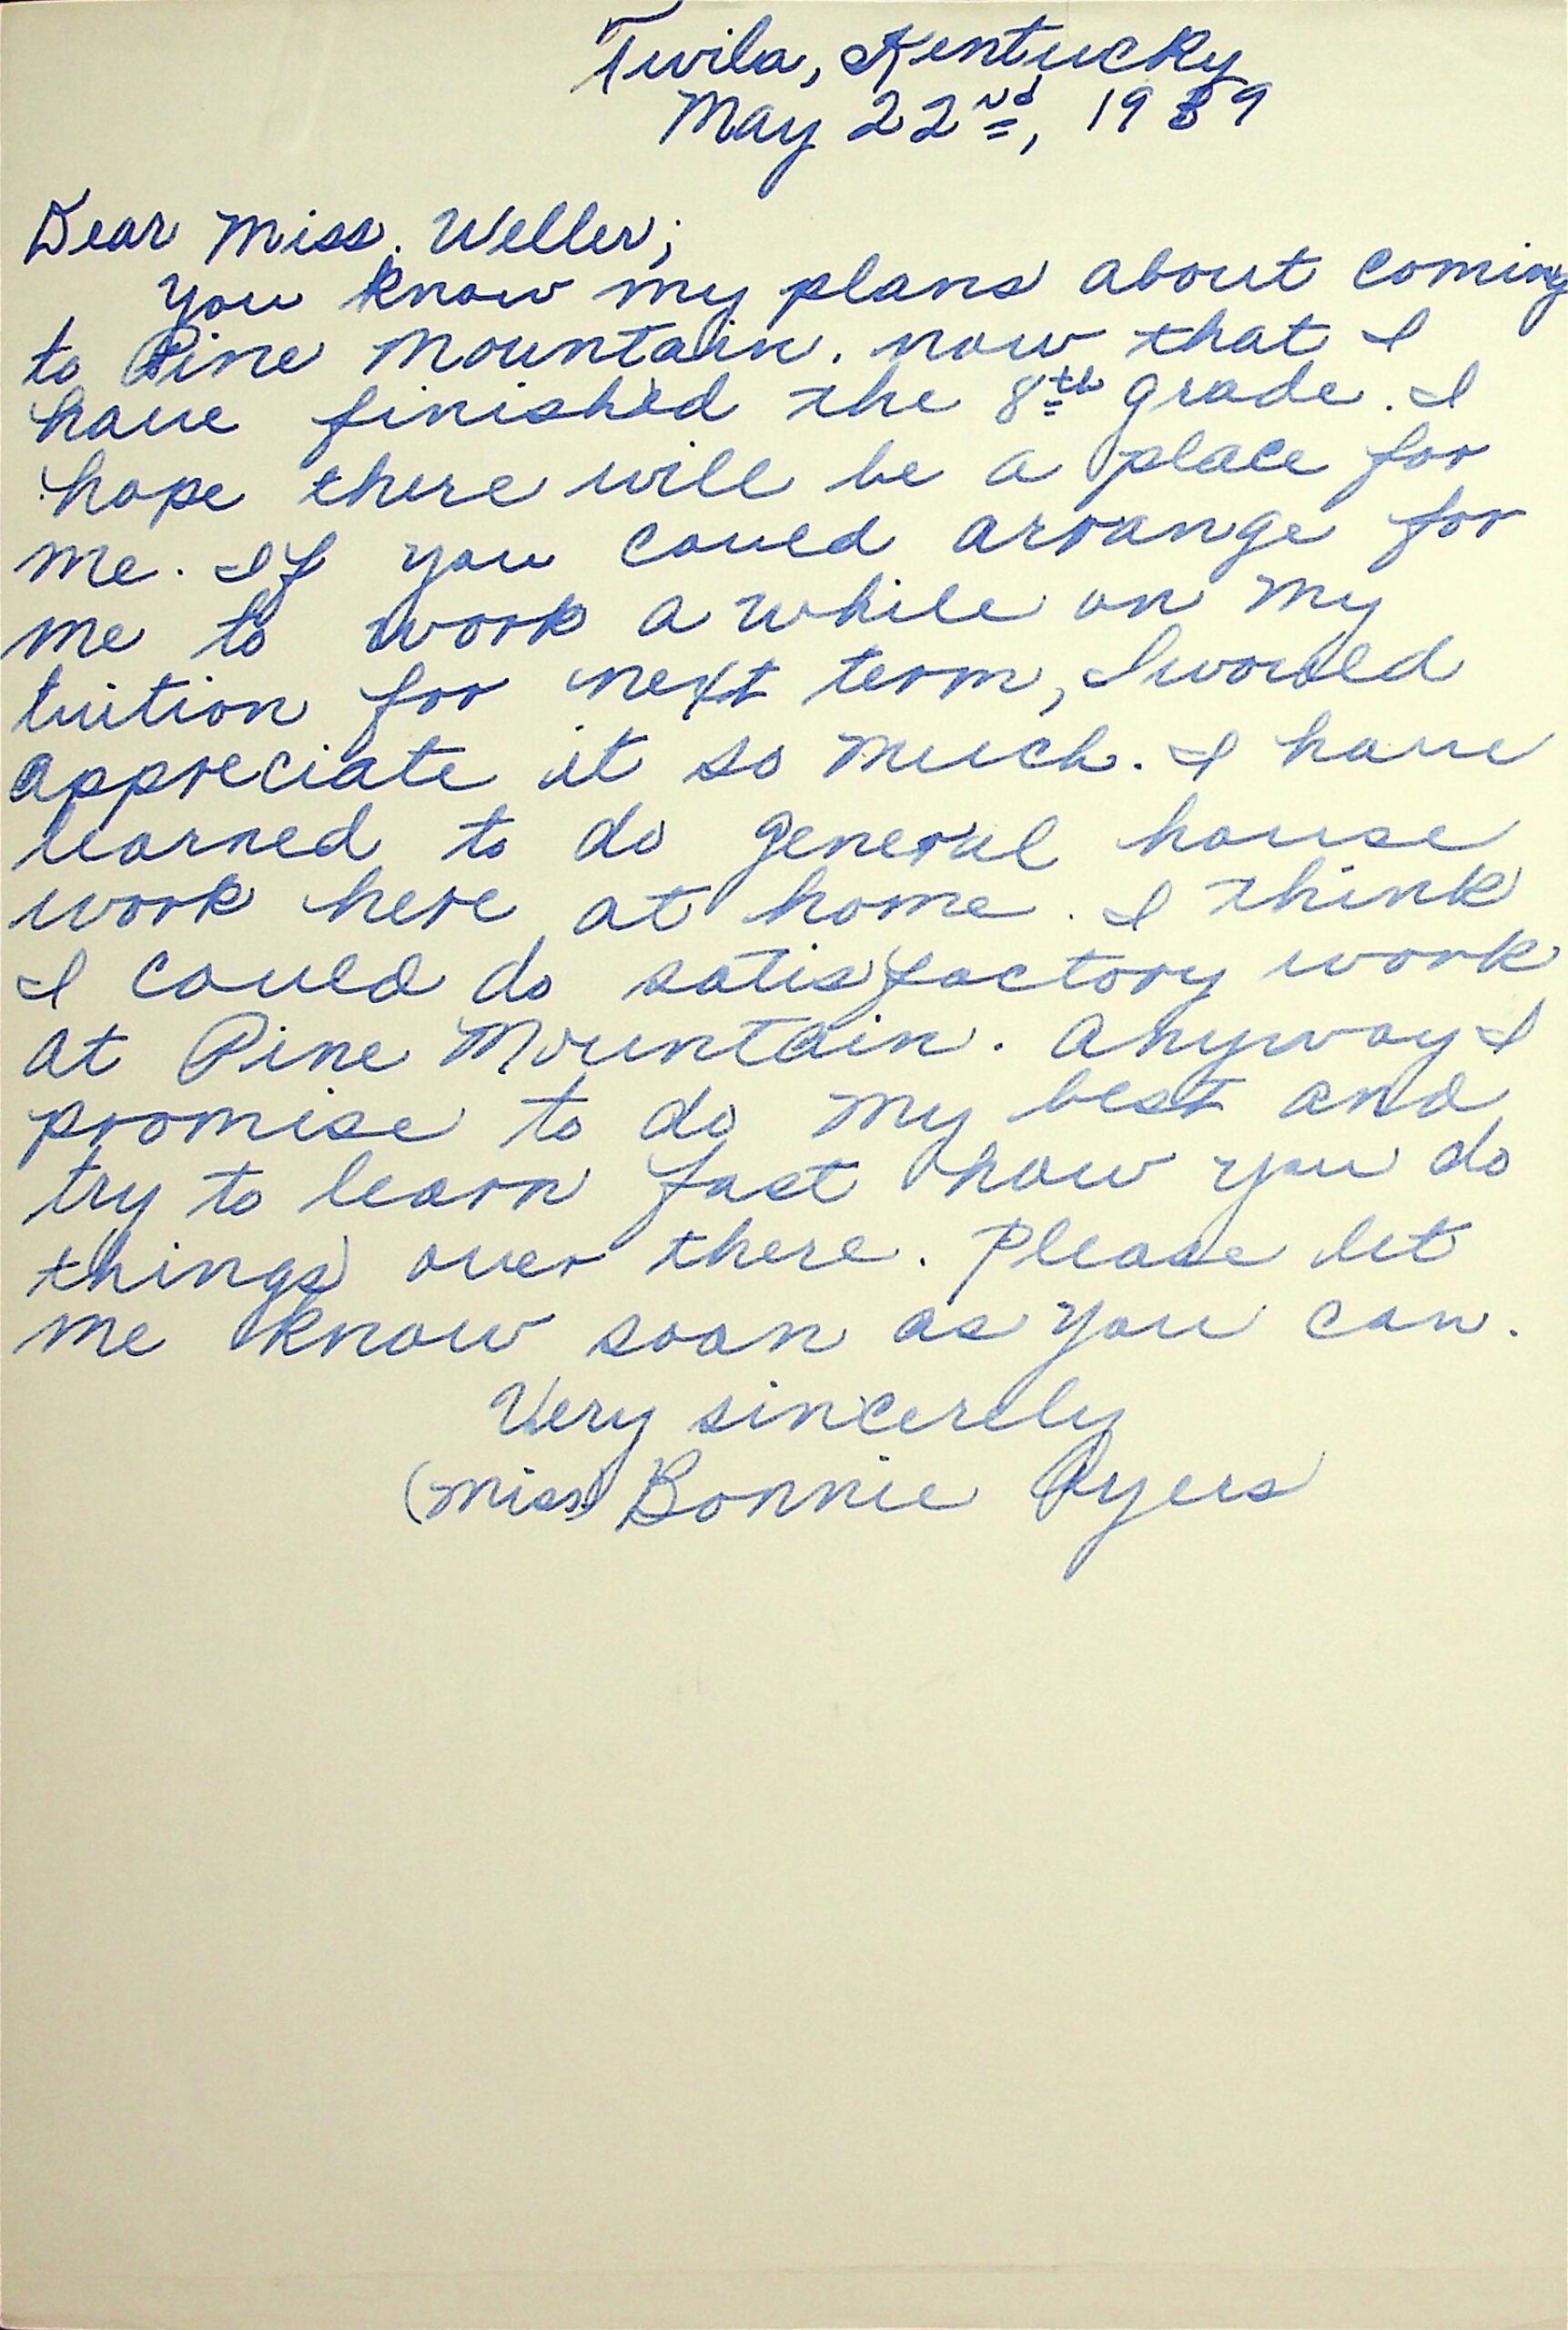 Twila, Kentucky
May 22nd, 1939
Dear Miss. Weller;
You know my plans about coming
to Pine Mountain. now that I
have finished the 8th grade. I
hope there will be a place for
me. If you could arrange for
me to work a while on my
tuition for next term, I would
appreciate it so much. I have
learned to do general house
work here at home. I think
I could do satisfactory work
at Pine Mountain. Anyway I
promise to do my best and
try to learn fast how you do
things over there. Please let
me know soon as you can.
Very sincerely
(Miss) Bonnie Ayers